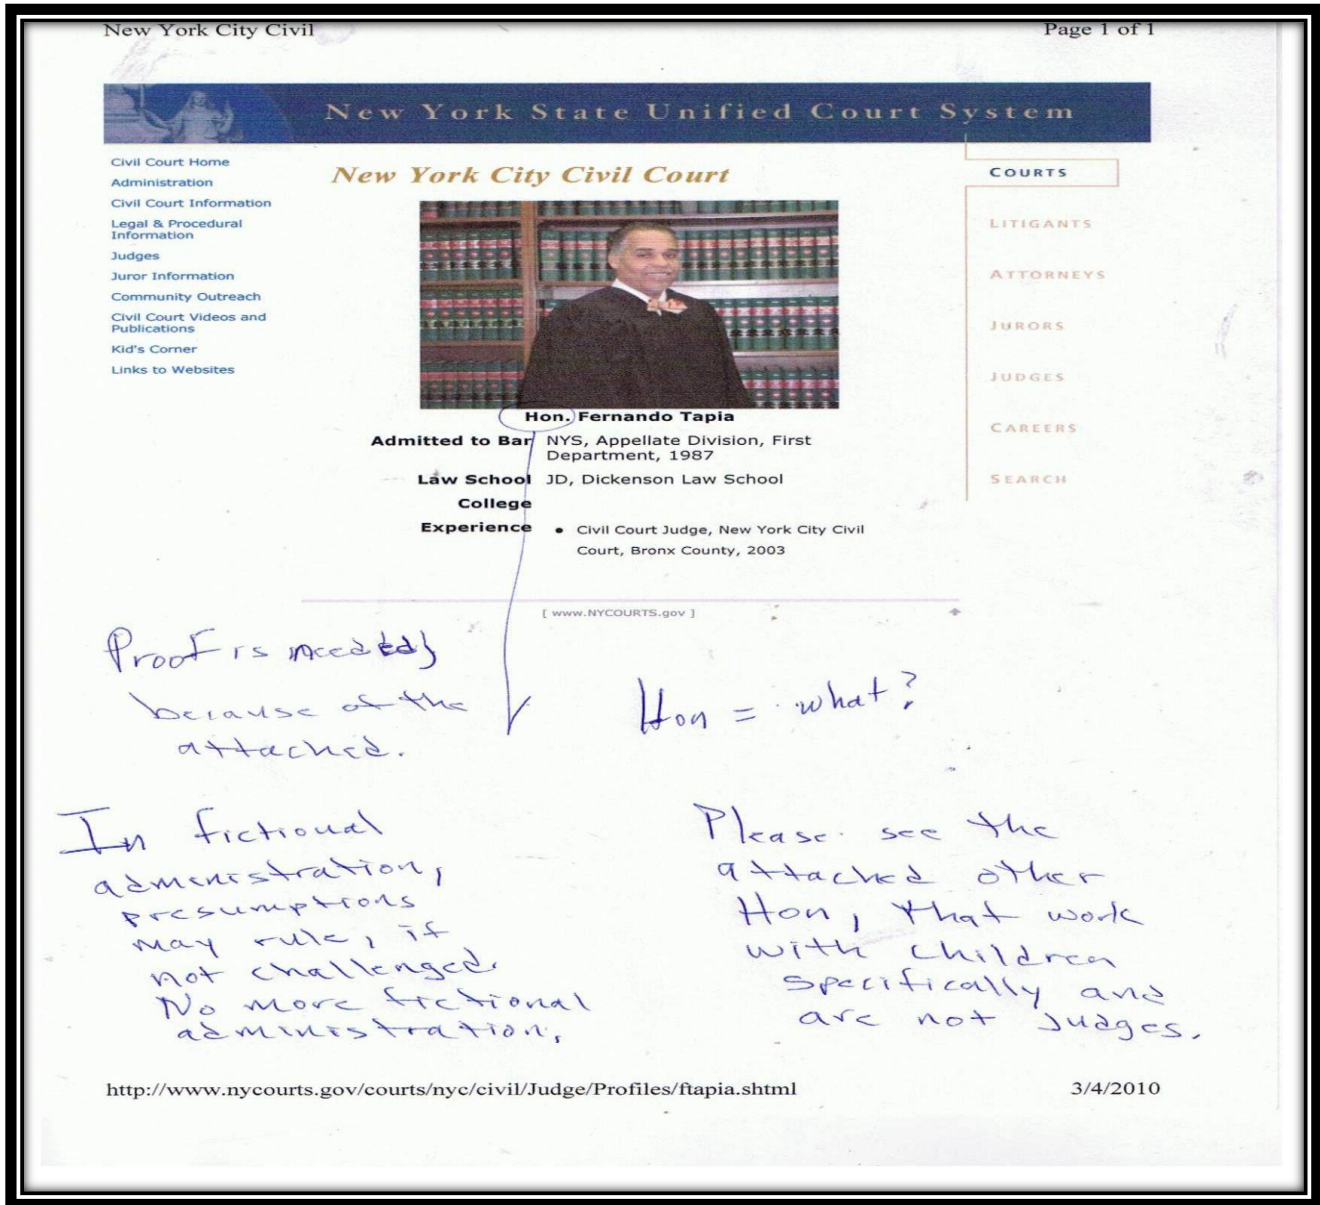 New York City Civil
Page 1 of 1
New York State Unified Court System
Civil Court Home
Administration
Civil Court Information
Legal & Procedural
Information
Judges
Juror Information
Community Outreach
Civil Court Videos and
Publications
Kid's Corner
Links to Websites
New York City Civil Court
COURTS
LITIGANTS
ATTORNEYS
JURORS
JUDGES
CAREERS
SEARCH
Hon. Fernando Tapia
Admitted to Bar NYS, Appellate Division, First
Department, 1987
Law School JD, Dickenson Law School
College
Experience • Civil Court Judge, New York City Civil
Court, Bronx County, 2003
[ www.NYCOURTS.gov ]
Proof is needed
because of the
attached.
Hon = what?
In fictional
administration,
presumptions
may rule, if
not challenged.
No more fictional
administration.
Please see the
attached other
Hon, that work
with children
specifically and
are not Judges.
http://www.nycourts.gov/courts/nyc/civil/Judge/Profiles/ftapia.shtml
3/4/2010